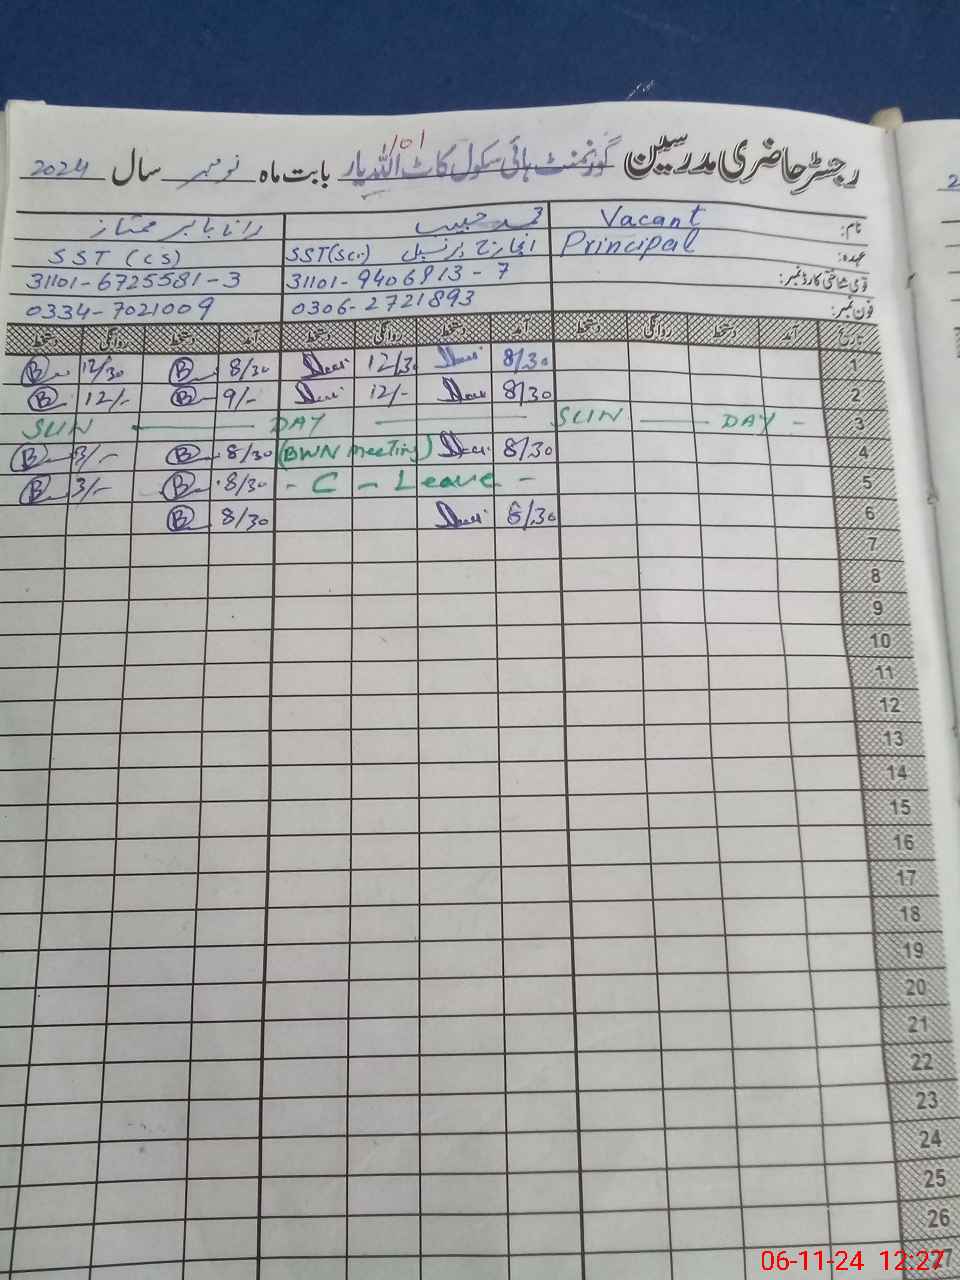 رجسٹر حاضری مدرسین گورنمنٹ ہائی سکول کاٹ اللہ یار بابت ماہ نومبر سال 2024
نام: Vacant محمد حبیب رانا بابر ممتاز
عہدہ: Principal انچارج پرنسپل SST(Sci.) SST (CS)
قومی شناختی کارڈ نمبر: 31101-9406913-7 31101-6725581-3
فون نمبر: 0306-2721893 0334-7021009
تاریخ آمد دستخط روانگی دستخط آمد دستخط روانگی دستخط آمد دستخط روانگی دستخط
1 8/30 12/30 8/30 B 12/30 B
2 8/30 12/- 9/- B 12/- B
3 SUN DAY SUN DAY
4 8/30 (BWN meeting) 8/30 B 3/- B
5 C - Leave - 8/30 B 3/- B
6 8/30 8/30 B
7
8
9
10
11
12
13
14
15
16
17
18
19
20
21
22
23
24
25
26
27
06-11-24 12:27